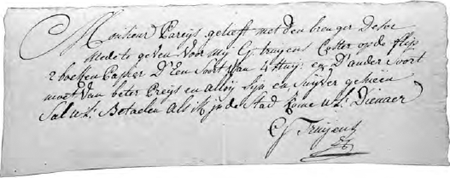 Monsieur Parijs gelieft met den brenger deser
mede te geven voor my G truyens Coster op de
2 boeken Papier D'Een Soort van 4 en D'ander Soort
moet van beter Preys en alloy syn en Suyver
Sal u.l. Betaelen als ik in de Stad kome u.l. Dienaer
G Truyens